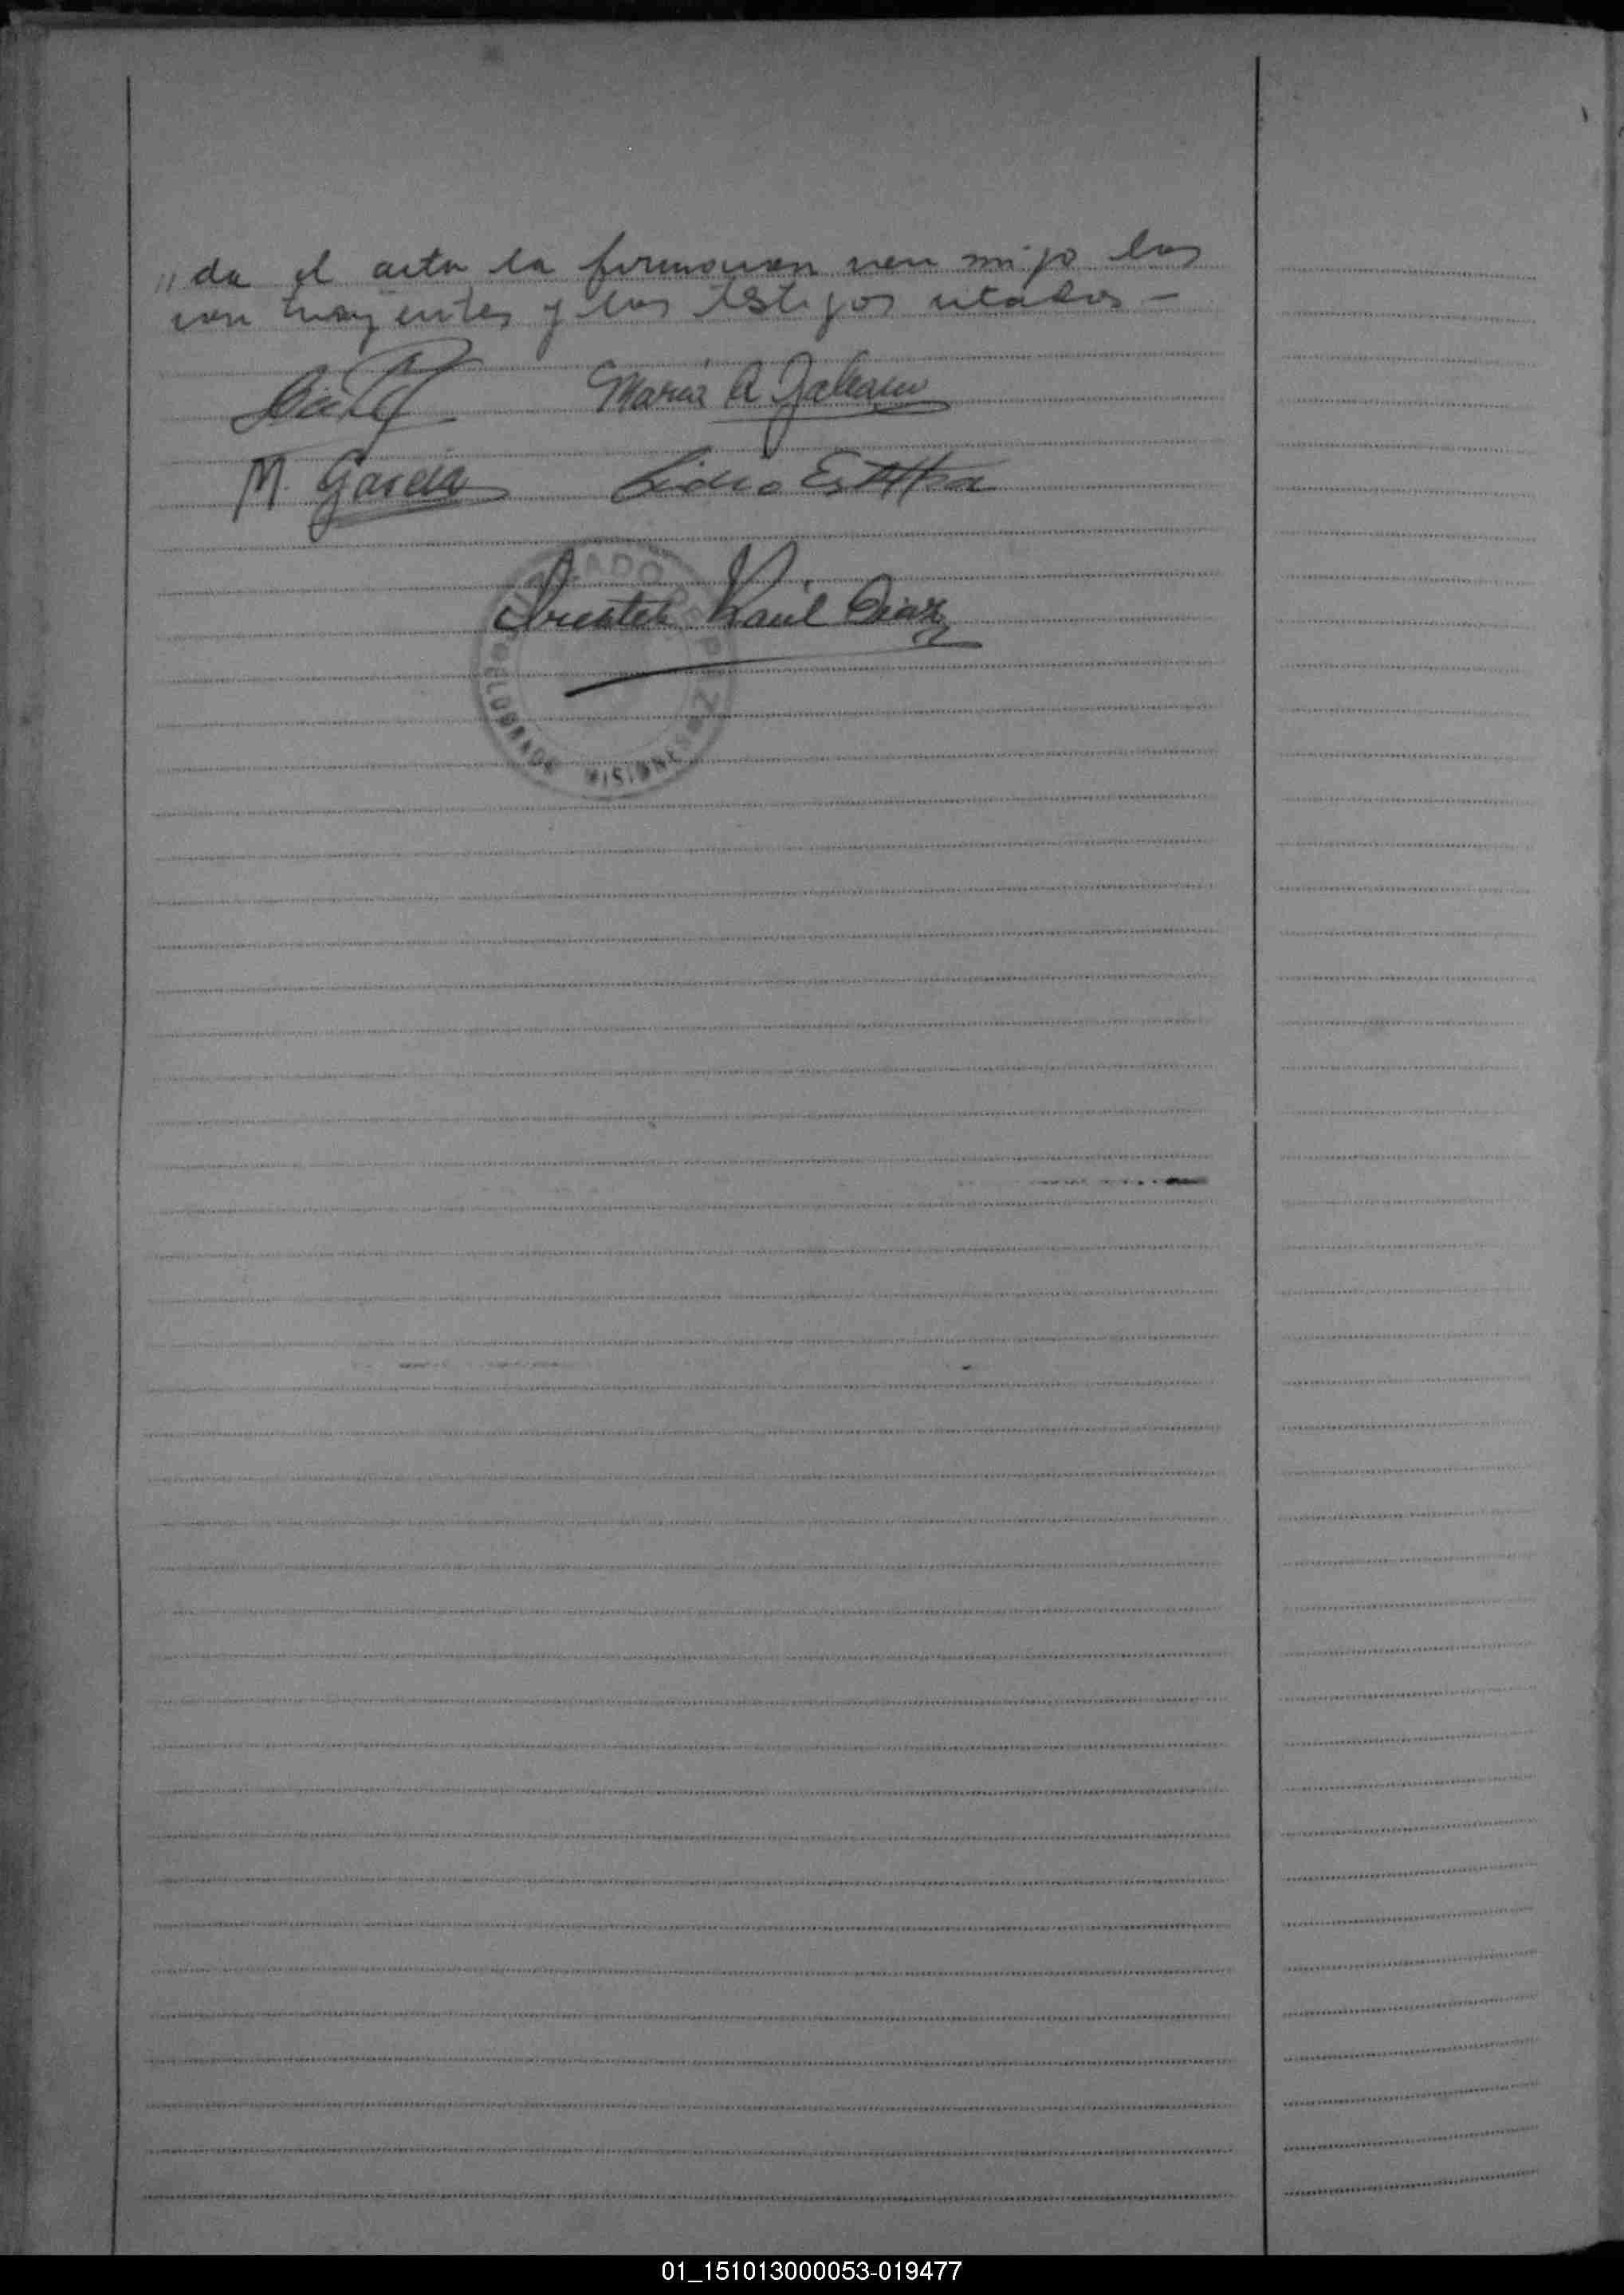 ,, da el acta la firmaron con migo los
con trayentes y los testigos citados —
María A Galeano
M. García
Lidio
Orestes Raúl Diaz
ELDORADO MISIONES
01_151013000053-019477